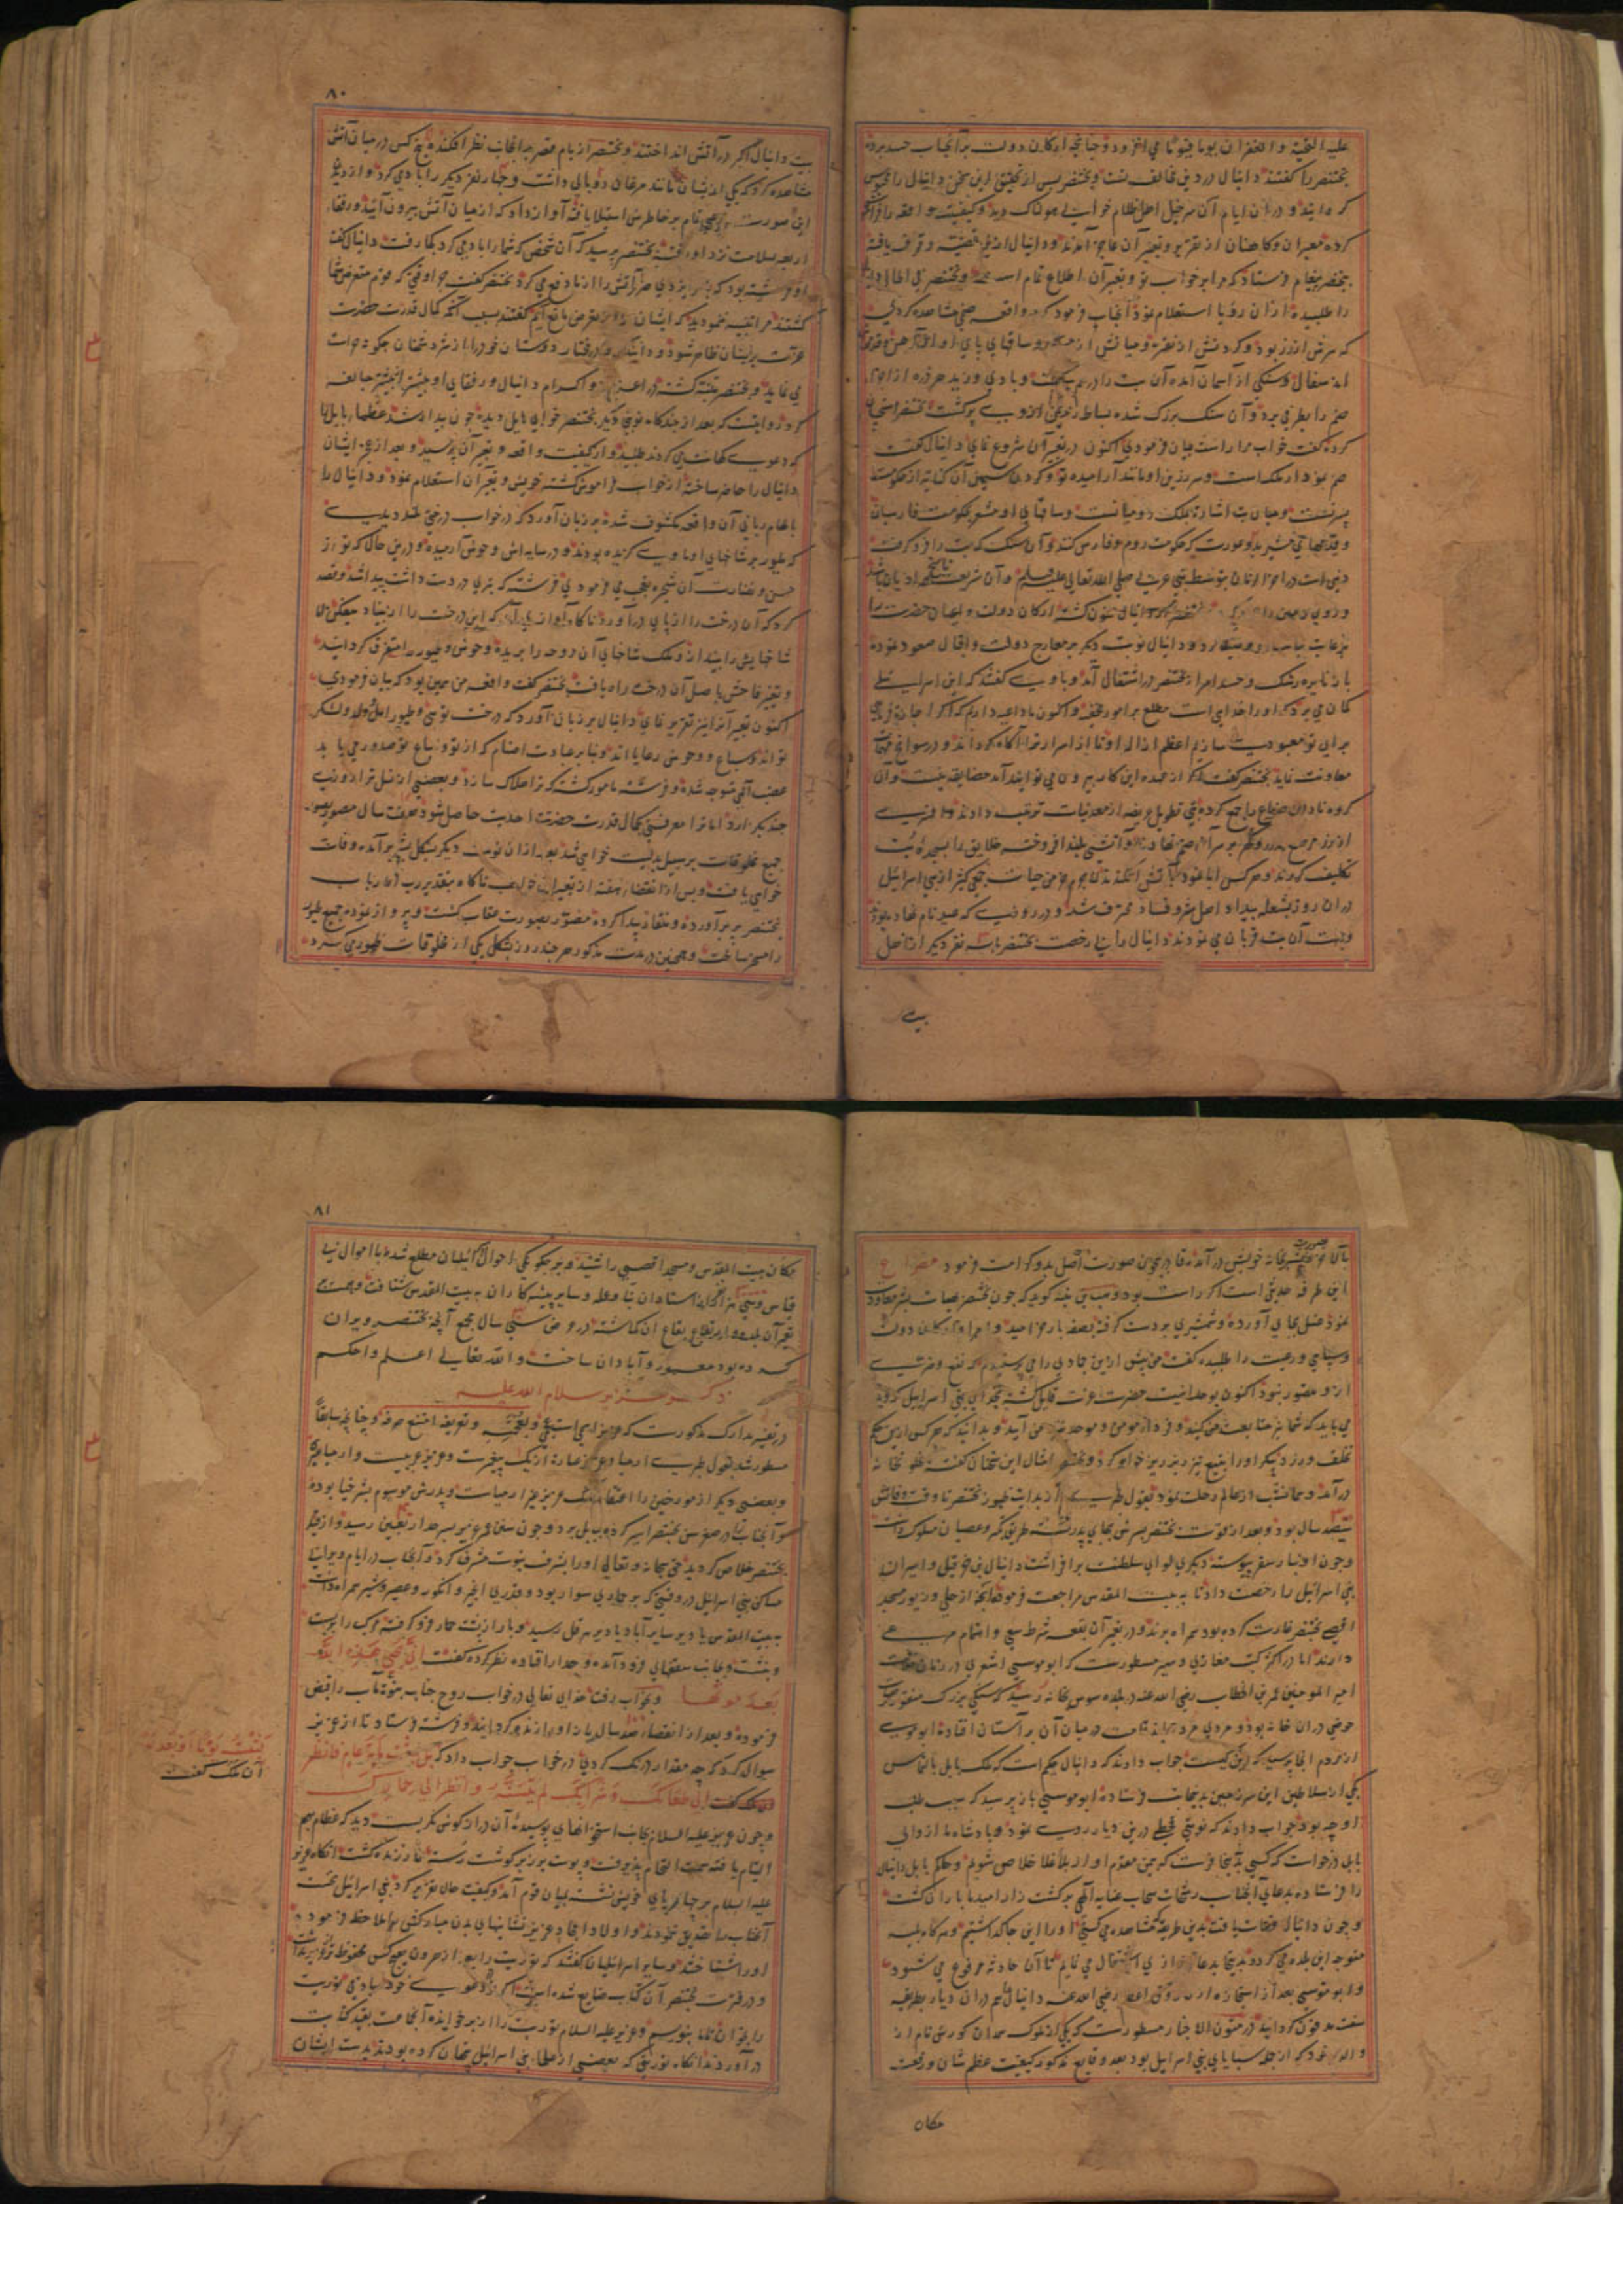 علیه التحیة والغفران یوما فیوما می افزود و چنانچه ارکان دولت بر آنجناب حسد برده
بختنصر را کفتند دانیال در دین مخالف تست و بختنصر پس از تحقیق این سخن دانیال را محبوس
کردانید و در آن ایام آن سرخیل اهل ظلام خوابی هولناک دید و کیفیت واقعه را فراموش
کرده معبران و کاهنان از تقریر و تعبیر آن عاجز آمدند و دانیال ازین قضیه وقوف یافته
ببختنصر پیغام فرستاد که مرا بر خواب تو و تعبیر آن اطلاع تمام است و بختنصر فی الحال دانیال
را طلبیده از آن رؤیا استعلام نمود آنجناب فرمود که در واقعه صنمی مشاهده کردی
که سرش از زر بود و کردنش از نقره و میانش از مس و ساقهای پای او از آهن و قدمش
از سفال و سنکی از آسمان آمده آن بت را در هم شکست و بادی وزید هر ذره از اجزای
صنم را بطرفی برد و آن سنک بزرک شده بساط زمین از وی پر کشت بختنصر استحسان
کرده کفت خواب مرا راست بیان فرمودی اکنون در تعبیر آن شروع نمای دانیال کفت
صنم نمودار ملک است و سر زرین او مانند آرامیده تو و کردن سیمین آن کنایه از حکومت
پسر تست و میان بت اشارة بملک رومیانست و ساقهای او مشعر بحکومت فارسیان
دینی است در آخر الزمان بتوسط نبی عربی صلی الله تعالی علیه وسلم و آن شریعت ناسخ ادیان باشد
باز نایره رشک و حسد امرا بختنصر در اشتعال آمد و با وی کفتند که این اسرائیلی
کمان می برد که او را خدایی است مطلع بر امور مخفیه و اکنون ما داعیه داریم که اکر اجازة فرمایی
برای تو معبودی سازیم اعظم از اله او تا از اسرار ترا آکاه کرداند و در سوانح مهمات
معاونت نماید بختنصر کفت اکر از عهده این کار بیرون می توانید آمد مضایقه نیست و آن
کروه نادان صناع را جمع کرده بتی طویل عریض از معدنیات ترتیب دادند و افسری
تکلیف کردند و هر کس ابا نمود در آتش افکندند لاجرم خرمن حیات جمعی کثیر از بنی اسرائیل
در آن روز بشعله بیداد اهل شر و فساد محترق شد و در روزی که عید نام نهاده بودند
و بجهت آن بت قربان می نمودند دانیال را بی رخصت بختنصر با سه نفر دیکر از اهل
بیت
۸۰
بیت دانیال اکبر در آتش انداختند و بختنصر از بام قصر بدانجانب نظر افکنده پنج کس در میان آتش
مشاهده کرد که یکی از ایشان مانند مرغان دو بالی داشت و چهار نفر دیکر را باد می کرد و از دیدن
این صورت رعبی تمام بر خاطرش استیلا یافته آواز داد که از میان آتش بیرون آیید و رفقاء
اربعه بسلامت نزد او رفته بختنصر پرسید که آن شخص که شما را باد می کرد بکجا رفت دانیال کفت
او فرشته بود که بامر ایزدی حر آتش را از ما دفع می کرد بختنصر کفت چرا وقتی که قوم متعرض شما
کشتند مرا تنبیه ننمودید که ایشان را از تعرض مانع آیم کفتند سبب آنکه کمال قدرت حضرت
عزت بر ایشان ظاهر شود و دانند که رفتار دوستان خود را از شر دشمنان چکونه حراست
می نماید و بختنصر متنبه کشته در اعزاز و اکرام دانیال و رفقای او بیشتر از پیشتر مبالغه
کرد روایتست که بعد از چندکاه نوبتی دیکر بختنصر خوابی هایل دیده چون بیدار شد عظماء بابل را
که دعوی کهانت می کردند طلبید و از کیفیت واقعه و تعبیر آن پرسید و بعد از عجز ایشان
دانیال را حاضر ساخته از خواب فراموش کشته خویش و تعبیر آن استعلام نمود و دانیال را
بالهام ربانی آن واقعه مکشوف شده بر زبان آورد که در خواب درختی بلند دیدی
که طیور بر شاخهای او ماوی کزیده بودند و در سایه اش وحوش آرمیده و در این حال که تو از
حسن و نضارت آن شجره تعجب می فرمودی فرشته که تبری در دست داشت پیدا شد و قصد
کرد که آن درخت را از پای در آورد ناکاه آواز برآمد که این درخت را از بنیاد میفکن بل
شاخهایش را بینداز و ملک شاخهای آن دوحه را بریده وحوش و طیور را متفرق کردانید
و تغییر فاحش باصل آن درخت راه یافت بختنصر کفت واقعه من همین بود که بیان فرمودی
اکنون تعبیر آنرا نیز تقریر نمای دانیال بر زبان آورد که درخت تویی و طیور اهل و ولد و لشکر
تواند و سباع و وحوش رعایااند و بنابر عبادت اصنام که از تو و اتباع تو صدور می یابد
غضب الهی متوجه شده و فرشته مامور کشته که ترا هلاک سازد و بعضی از نسل ترا در زمین
جمیع مخلوقات بر سبیل بدلیت خواهی شد بعد از آن نوبت دیکر بشکل بشر برآمده وفات
خواهی یافت و پس از انقضاء هفته از تعبیر این خواب ناکاه بتقدیر رب الارباب
بختنصر پر برآورده و منقار پیدا کرده مصور بصورت عقاب کشت و پرواز نموده جمیع طیور
را مسخر ساخت و همچنین در مدت مذکور هر چند روز بشکل یکی از مخلوقات ظهور می کرد
این طرفه حدیثی است اکر راست بود وهب بن منبه کوید که چون بختنصر بهیات بشر معاودت
نمود غسل بجای آورده و شمشیری بر دست کرفته بقصد بارکاه خرامید و امرا و ارکان دولت
و سپاهی و رعیت را طلبیده کفت من پیش ازین جمادی را می پرستیدم که نفع و ضرری
ازو متصور نبود اکنون بوحدانیت حضرت عزت قایل کشته بخدای بنی اسرائیل کرویدم
می باید که شما نیز متابعت من کنید
تخلف ورزد پیکر او را به تیغ تیز ریز ریز خواهم کرد و بختنصر امثال این سخنان کفته بخلوتخانه
درآمد و بمانشب از عالم رحلت نمود بقول طبری از بدایت ظهور بختنصر تا وقت وفاتش
سیصد سال بود و بعد از فوت بختنصر پسرش بجای پدر نشسته طریق کفر و عصیان مسلوک داشت
و چون او نیز بسقر پیوست دیکری لوای سلطنت برافراشت دانیال بن حزقیل و اسیران
بنی اسرائیل را رخصت داد تا به بیت المقدس مراجعت فرمودند و آنچه از حلی و زیور مسجد
اقصی بختنصر غارت کرده بود همراه برند و در تعمیر آن بقعه شرط سعی و اهتمام مرعی
دارند اما در اکثر کتب مغازی و سیر مسطورست که ابو موسی اشعری در زمان خلافت
امیر المومنین عمر بن الخطاب رضی الله عنه در بلده سوس بخانه رسید که سنکی بزرک منقور بصورت
حوضی در آن خانه بود و مردی مرده بلند قامت در میان آن بر آستان افتاده ابو موسی
از مردم آنجا پرسید که این کیست جواب دادند که دانیال حکیم است که ملک بابل بالتماس
یکی از سلاطین این سرزمین بدینجانب فرستاده ابو موسی باز پرسید که سبب طلب
او چه بود جواب دادند که نوبتی قحطی درین دیار روی نمود و پادشاه ما از والی
بابل درخواست که کسی بدینجا فرست که بیمن مقدم او از بلا و غلا خلاص شویم و حاکم بابل دانیال
را فرستاده بدعای آنجناب رشحات سحاب عنایه الهی بر کشت زار امید ما باران کشت
و چون دانیال وفات یافت بدین طریق که مشاهده می کنی او را این جا کذاشتیم و هرکاه بلیه
متوجه این بلده می کردد بدینجا بدعا و زاری اشتغال می نمایم تا آن حادثه مرفوع می شود
و ابو موسی بعد از استجازه از فاروق اعظم رضی الله عنه دانیال را هم در آن دیار بطریقه
سنت مدفون کردانید در متون الاخبار مسطورست که یکی از ملوک همدان کورش نام از
والده خود که از جمله سبایای بنی اسرائیل بود بعد وقایع مذکور کیفیت عظم شان و رفعت
مکان
۸۱
مکان بیت المقدس و مسجد اقصی را شنید و بر چکونکی احوال اسرائیلیان مطلع شده با اموال بی
قیاس و سی هزار کس از استادان بنا و عمله و سایر پیشه کاران به بیت المقدس شتافت و همت
تعمیر آن بلده و ارتفاع بقاع آن کماشته در عرض سی سال مجموع آنچه بختنصر ویران
کرده بود معمور و آبادان ساخت والله تعالی اعلم واحکم
ذکر عزیر سلام الله علیه
در تفسیر مدارک مذکورست که عزیر اسمی است عجمی و بعجمه و تعریفه امتنع صرفه و چنانچه سابقاً
مسطور شد بقول طبری ارمیا و عزیر عبارة از یک پیغمبرست و عزیر عربیست و ارمیا عبری
و بعضی دیکر از مورخین را اعتقاد آنکه عزیر غیر ارمیاست و پدرش موسوم بشرخیا بوده
و آنجناب را در صغر سن بختنصر اسیر کرده ببابل برد و چون سن عزیر بسر حد اربعین رسید و از قید
بختنصر خلاص کردید حق سبحانه و تعالی او را بشرف نبوت مشرف کرد و آنجناب در ایام ویرانی
مساکن بنی اسرائیل در وقتیکه بر حماری سوار بود و قدری انجیر و انکور و عصیر و شیر همراه داشت
به بیت المقدس یا دیر سایر آباد یا دیر هرقل رسید و بار از پشت حمار فرو کرفته مرکب را ببست
و بنشست و بجانب سقفهای فرود آمده و جدار افتاده نظر کرده کفت انی یحیی هذه الله
بعد موتها و بخواب رفته خدای تعالی در خواب روح جناب نبوة مآب را قبض
فرموده و بعد از انقضاء صد سال باز او را زنده کردانید و فرشته فرستاد تا از عزیر
سوال کرد که چه مقدار درنک کردی در خواب جواب داد که بل لبثت مایة عام فانظر
ملک کفت الی طعامک و شرابک لم یتسنه وانظر الی حمارک
لبثت یوما او بعد یوم
آن ملک کفت
و چون عزیر علیه السلام بجانب استخوانهای پوسیده آن دراز کوش نکریست دید که عظام بهم
التیام یافته سمت التحام پذیرفت و پوست بر زبر کوشت رسته حمار زنده کشت آنکاه عزیر
علیه السلام بر چهارپای خویش نشسته بمیان قوم آمد و کیفیت حال تقریر کرد بنی اسرائیل نخست
آنجناب را تصدیق ننمودند و اولاد امجاد عزیر نشانهای بدن مبارکش ملاحظه فرموده
او را شناختند و سایر اسرائیلیان کفتند که توریت را بعد از هرون هیچ کس محفوظ نداشت
و در فترت بختنصر آن کتاب ضایع شده است اکر در دعوی خود صادقی توریت
را بخوان تا ما بنویسیم و عزیر علیه السلام توریت را از بر خوانده آنجماعت بقید کتابت
درآوردند آنکاه توریتی که بعضی از علماء بنی اسرائیل پنهان کرده بودند بدست ایشان